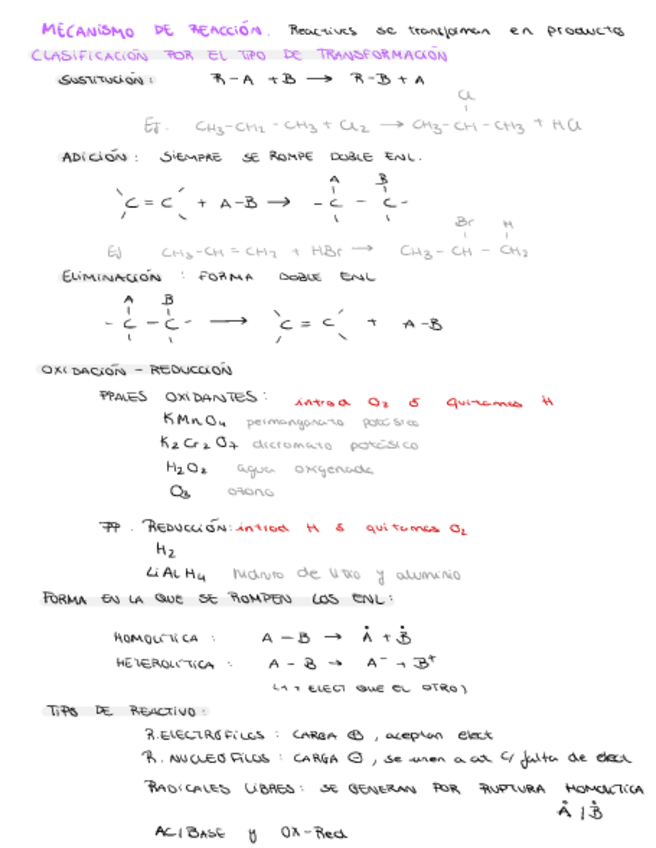 MECANISMO DE REACCIÓN. Reactivos se transforman en producto
CLASIFICACIÓN POR EL TIPO DE TRANSFORMACIÓN
SUSTITUCIÓN: R-A + B → R-B + A
Cl
EJ. CH3-CH2-CH3 + Cl2 → CH3-CH-CH3 + HCl
ADICIÓN: SIEMPRE SE ROMPE DOBLE ENL.
A B
C = C + A-B → - C - C -
Br H
EJ CH3-CH = CH2 + HBr → CH3-CH - CH2
ELIMINACIÓN: FORMA DOBLE ENL
A B
- C - C - → C = C + A-B
OXIDACIÓN - REDUCCIÓN
PPALES OXIDANTES: introd O2 ó quitamos H
KMnO4 permanganato potásico
K2Cr2O7 dicromato potásico
H2O2 agua oxigenada
O3 ozono
PP. REDUCCIÓN: introd H ó quitamos O2
H2
LiAlH4 hidruro de litio y aluminio
FORMA EN LA QUE SE ROMPEN LOS ENL:
HOMOLÍTICA: A - B → Ȧ + Ḃ
HETEROLÍTICA: A - B → A⁻ + B⁺
ELECT QUE EL OTRO)
TIPO DE REACTIVO:
R.ELECTRÓFILOS: CARGA ⊕, aceptan elect
R. NUCLEÓFILOS: CARGA ⊖, se unen a at c/ falta de elect
RADICALES LIBRES: SE GENERAN POR RUPTURA HOMOLÍTICA
Ȧ / Ḃ
AC/BASE y OX-Red